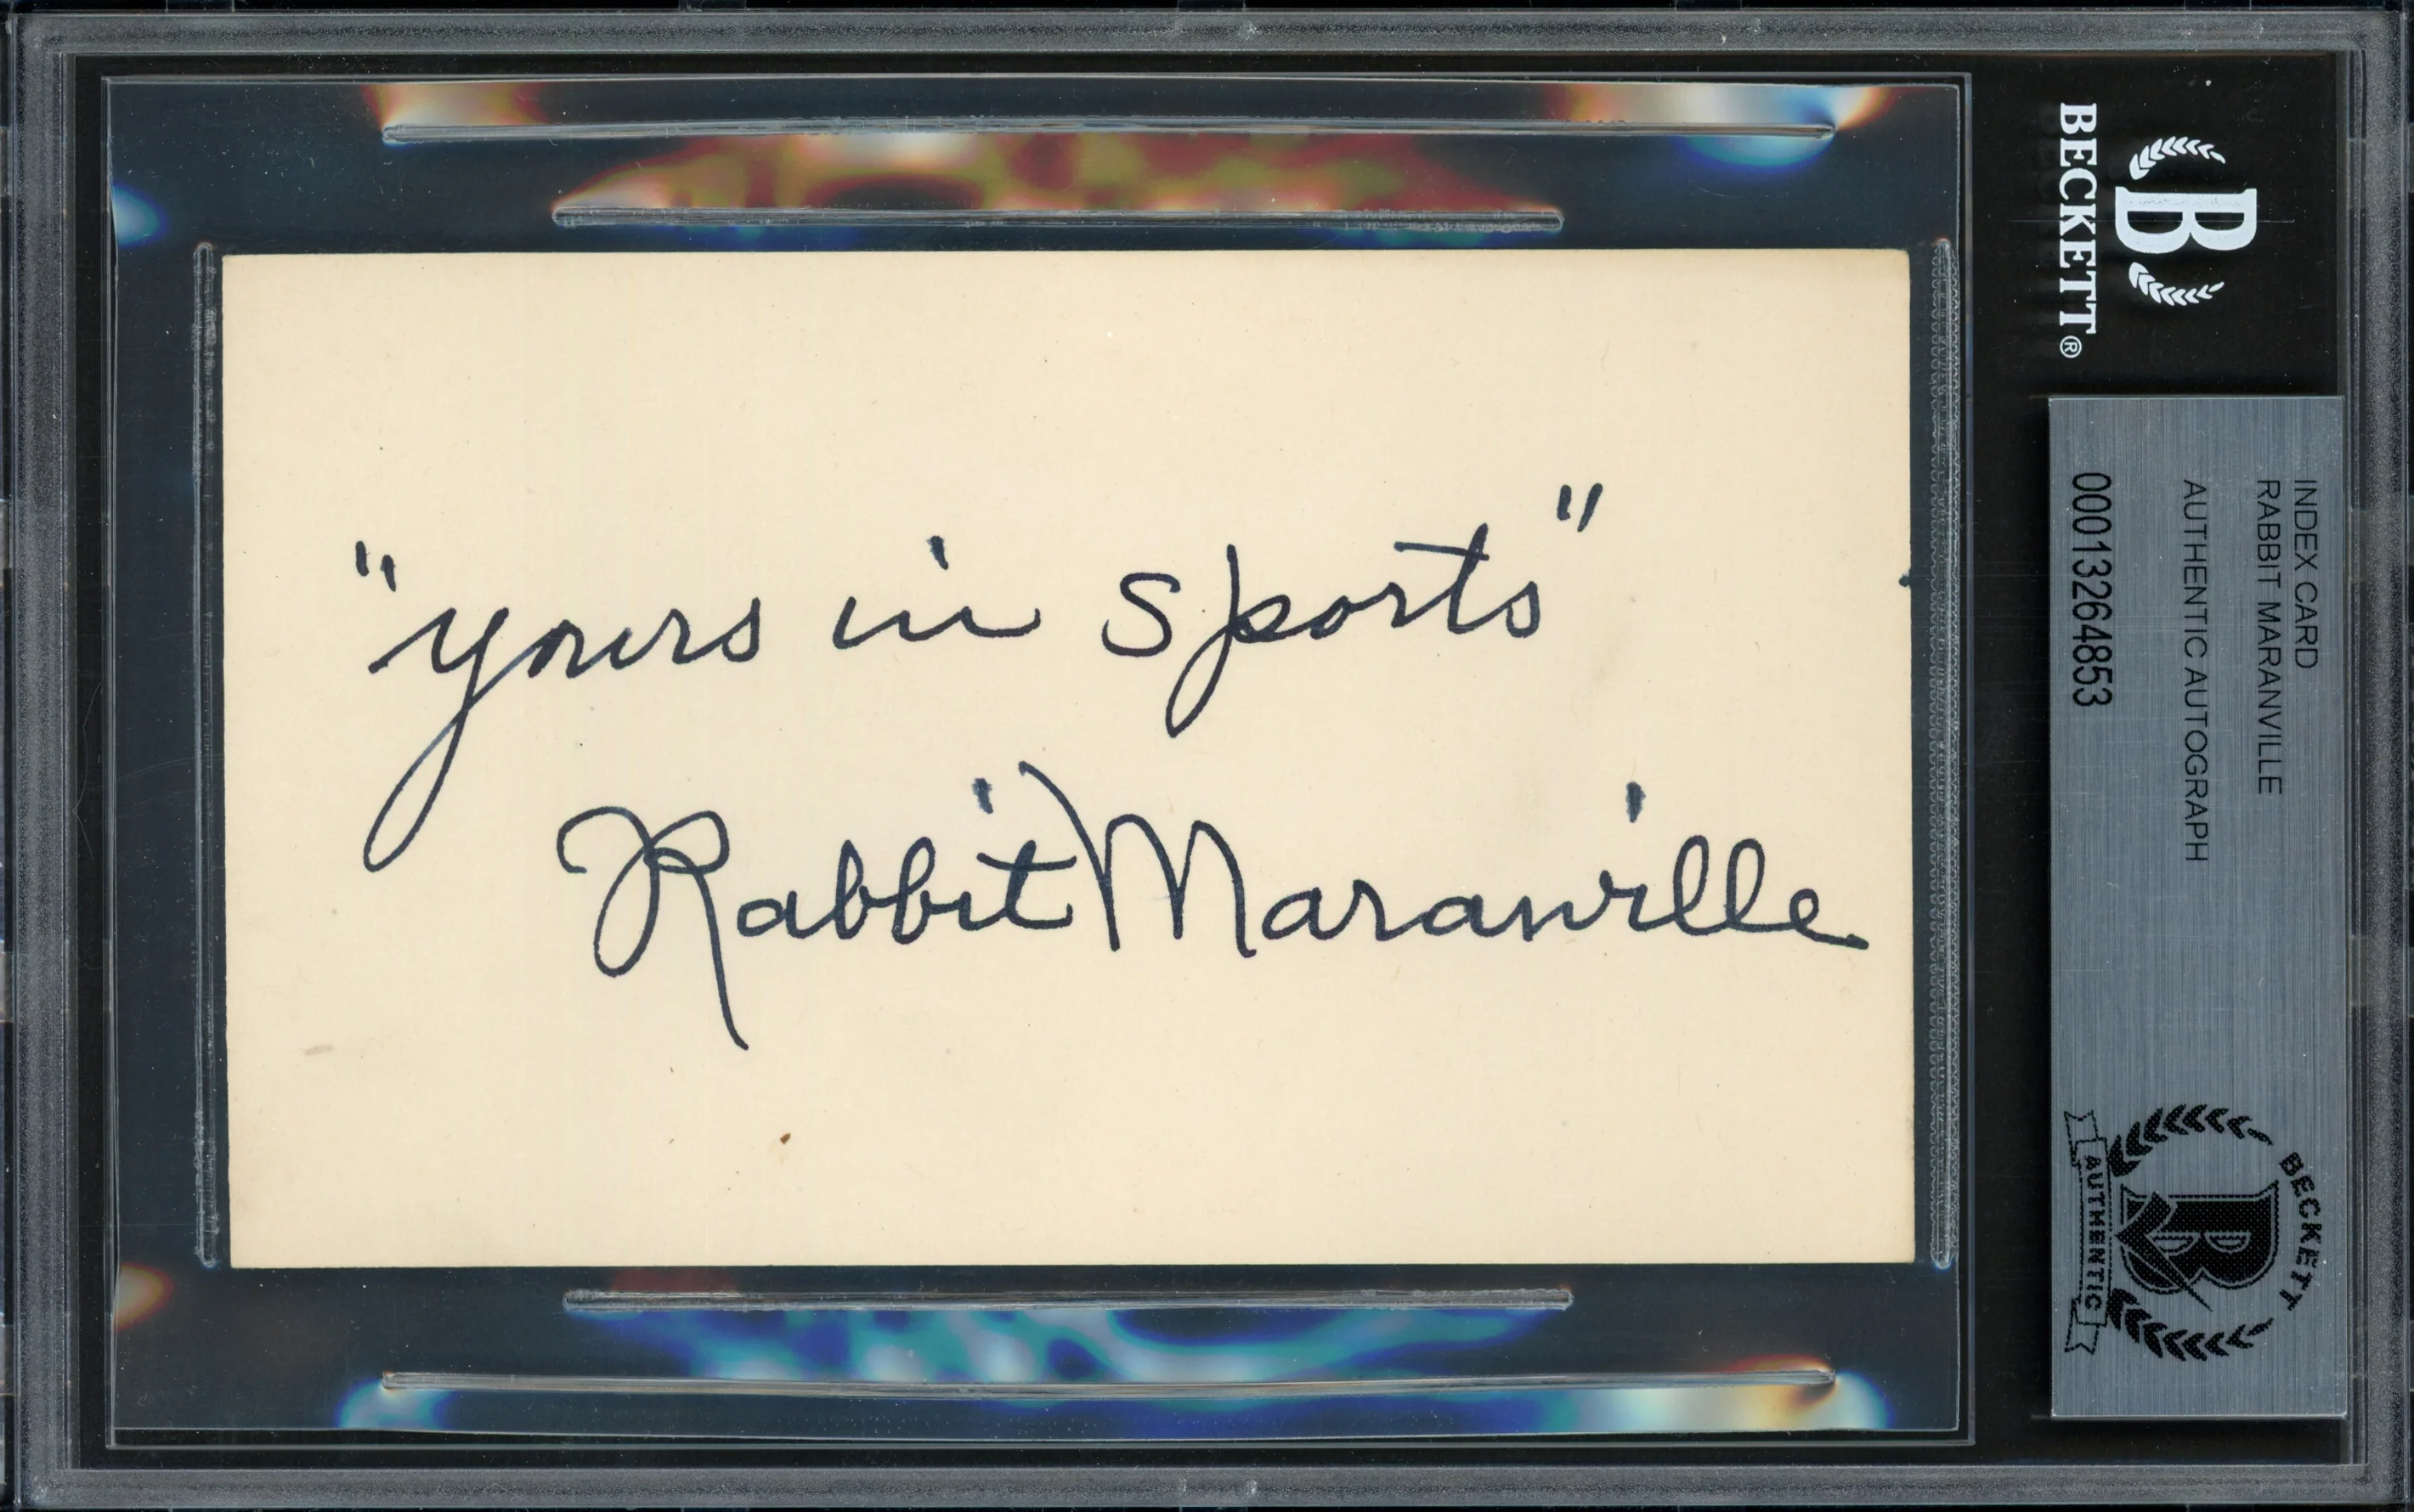 "yours in sports"
Rabbit Maranville
BECKETT®
INDEX CARD
RABBIT MARANVILLE
AUTHENTIC AUTOGRAPH
00013264853
BECKETT
AUTHENTIC